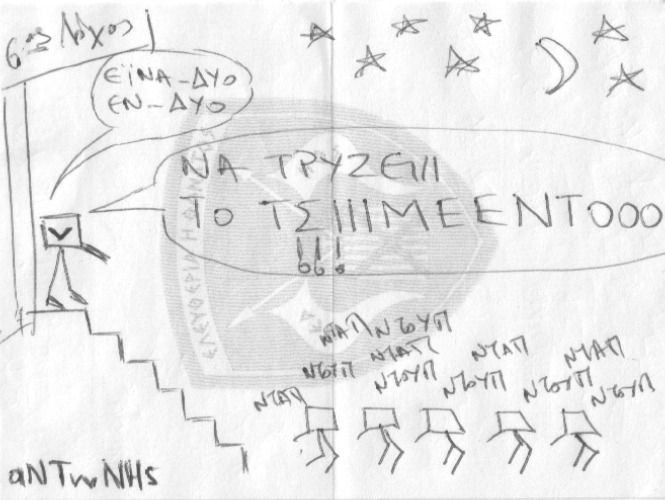 6ος Λόχος
ΕΪΝΑ-ΔΥΟ
ΕΝ-ΔΥΟ
ΝΑ ΤΡΥΖΕΙΙΙ
ΤΟ ΤΣΙΙΙΜΕΕΝΤΟΟΟ
!!!
ΕΛΕΥΘΕΡΙΑ Ή ΘΑΝΑΤΟΣ
ΝΤΑΠ ΝΤΟΥΠ
ΝΤΟΥΠ ΝΤΑΠ ΝΤΑΠ ΝΤΑΠ
ΝΤΑΠ ΝΤΟΥΠ ΝΤΟΥΠ ΝΤΟΥΠ ΝΤΟΥΠ
aNTwNHs